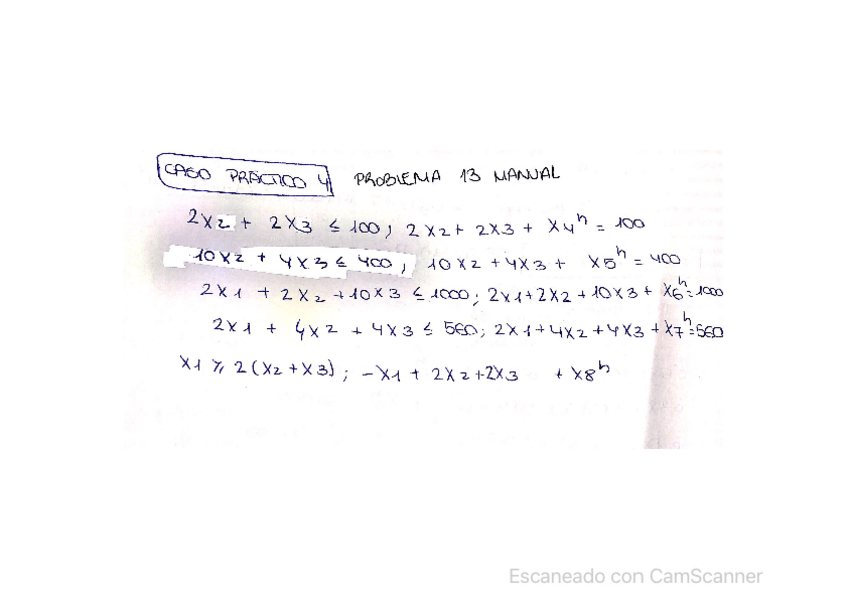 CASO PRÁCTICO 4 PROBLEMA 13 MANUAL
2x2 + 2x3 ≤ 100; 2x2 + 2x3 + x4ʰ = 100
10x2 + 4x3 ≤ 400; 10x2 + 4x3 + x5ʰ = 400
2x1 + 2x2 + 10x3 ≤ 1000; 2x1 + 2x2 + 10x3 + x6ʰ = 1000
2x1 + 4x2 + 4x3 ≤ 560; 2x1 + 4x2 + 4x3 + x7ʰ = 560
x1 ≥ 2(x2 + x3); -x1 + 2x2 + 2x3 + x8ʰ
Escaneado con CamScanner